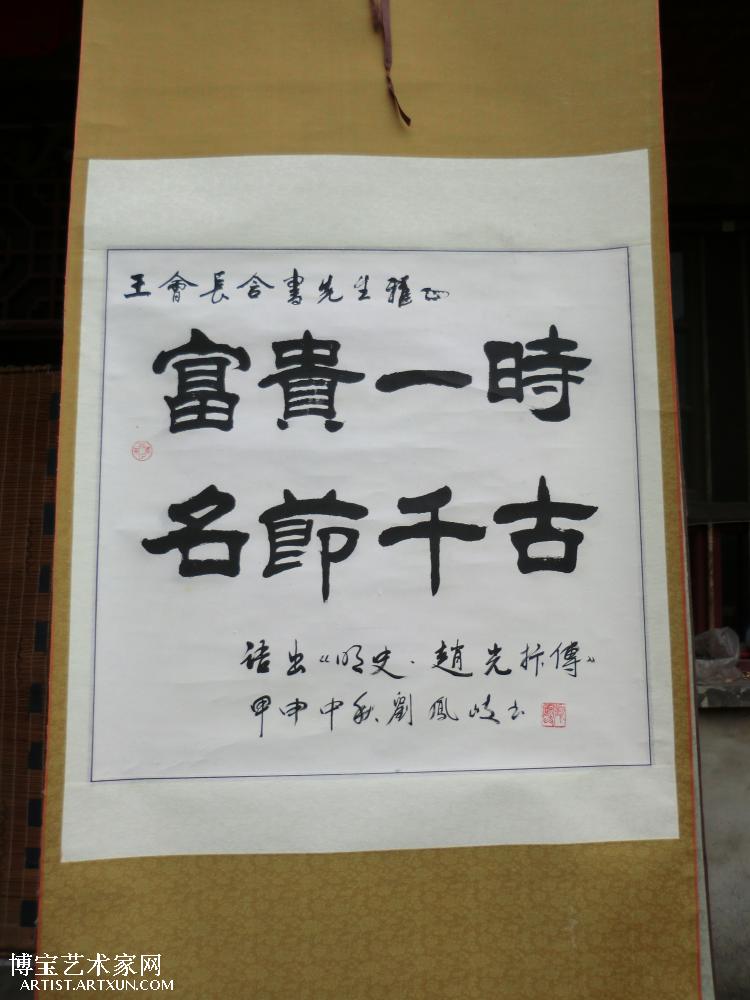 王會長含書先生雅正
富貴一時
名節千古
語出《明史·趙光抃傳》
甲申中秋劉鳳岐书
博宝艺术家网
ARTIST.ARTXUN.COM